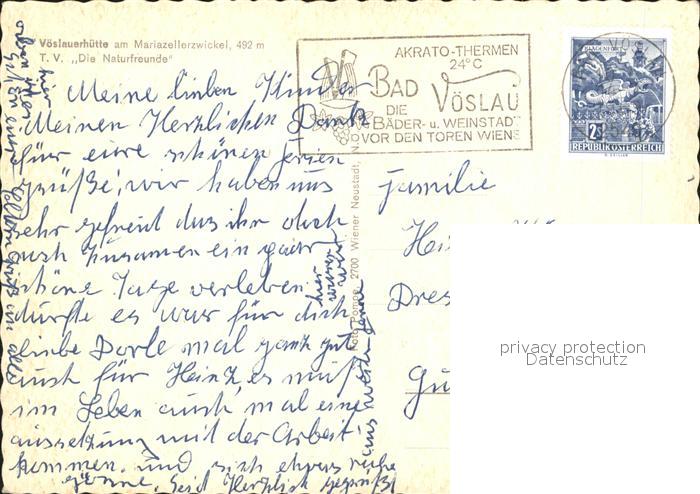 Vöslauerhütte am Mariazellerzwickel, 492 m
T. V. „Die Naturfreunde"
AKRATO-THERMEN
24°C
BAD VÖSLAU
DIE
BÄDER- u. WEINSTADT
VOR DEN TOREN WIENS
KLAGENFURT
2 S
REPUBLIK ÖSTERREICH
Meine lieben Kinder
Meinen Herzlichen Dank
für eure schönen Ferien
grüße, wir haben uns
sehr gefreut das ihr doch
noch zusamen ein paar
schöne Tage verleben
dürfte es war für dich
liebe Dorle mal ganz gut
auch für Heinz, es muß
im Leben auch mal eine
aussetzung mit der Arbeit
kommen. und sich etwas ruhe
gönne. Seid Herzlich gegrüßt
hier waren wir
Foto Pompe, 2700 Wiener Neustadt, N.Ö.
Familie
Dres
privacy protection
Datenschutz